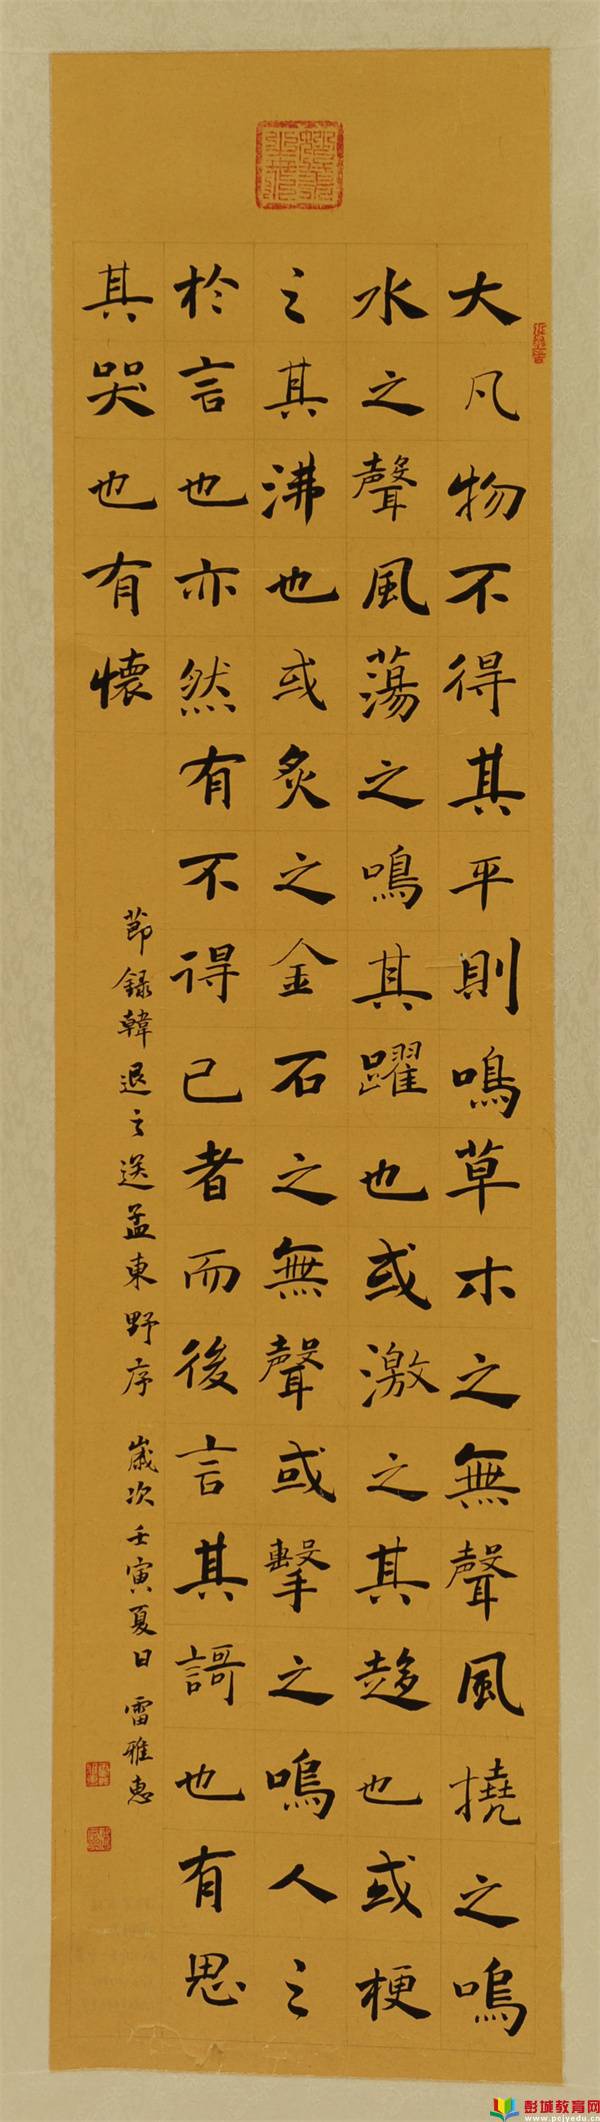 大凡物不得其平則鳴草木之無聲風撓之鳴
水之聲風蕩之鳴其躍也或激之其趍也或梗
之其沸也或炙之金石之無聲或擊之鳴人之
於言也亦然有不得已者而後言其謌也有思
其哭也有懷
節録韓退之送孟東野序 歲次壬寅夏日 雷雅惠
彭城教育网
www.pcjyedu.cn